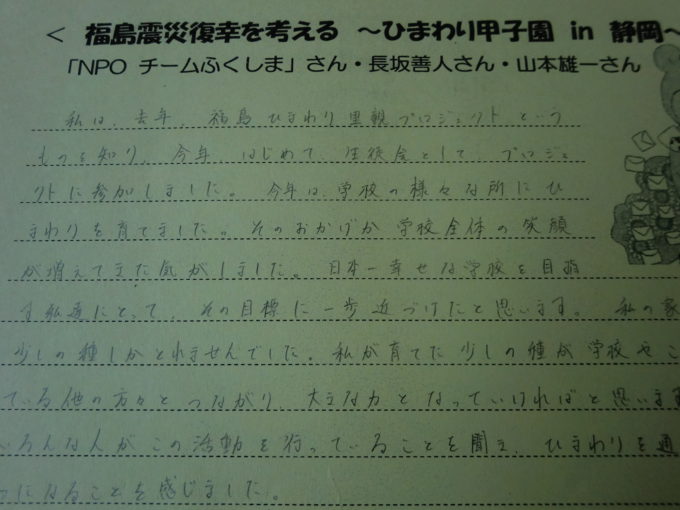 ＜ 福島震災復幸を考える ～ひまわり甲子園 in 静岡～
「NPO チームふくしま」さん・長坂善人さん・山本雄一さん
私は、去年、福島ひまわり里親プロジェクトという
ものを知り、今年、はじめて、生徒会として、プロジェ
クトに参加しました。今年は、学校の様々な所にひ
まわりを育てました。そのおかげか学校全体の笑顔
が増えてきた気がしました。日本一幸せな学校を目指
す私達にとって、その目標に一歩近づけたと思います。私の家
少しの種しかとれませんでした。私が育てた少しの種が学校やこ
ている他の方々とつながり、大きな力となっていければと思いま
いろんな人がこの活動を行っていることを聞え、ひまわりを通
になることを感じました。